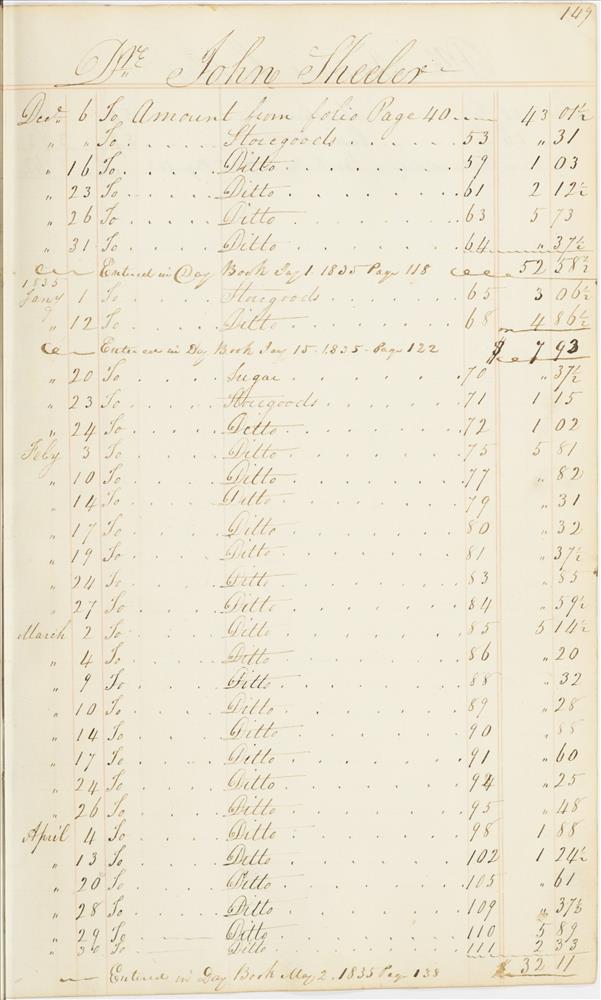 149
Dr. John Sheeler
Decr. 6 To Amount from folio Page 40 43 01½
" " To Storegoods 53 " 31
" 16 To Ditto 59 1 03
" 23 To Ditto 61 2 12½
" 26 To Ditto 63 5 73
" 31 To Ditto 64 " 37½
Entered in Day Book Jay 1 1835 Page 118 52 58½
1835
Jany 1 To Storegoods 65 3 06½
" 12 To Ditto 68 4 86½
Entered in Day Book Jay 15. 1835. Page 122 $ 7 93
" 20 To Sugar 70 " 37½
" 23 To Storegoods 71 1 15
" 24 To Ditto 72 1 02
Feby 3 To Ditto 75 5 81
" 10 To Ditto 77 " 82
" 14 To Ditto 79 " 31
" 17 To Ditto 80 " 32
" 19 To Ditto 81 " 37½
" 24 To Ditto 83 " 85
" 27 To Ditto 84 " 59½
March 2 To Ditto 85 5 14½
" 4 To Ditto 86 " 20
" 9 To Ditto 88 " 32
" 10 To Ditto 89 " 28
" 14 To Ditto 90 " 88
" 17 To Ditto 91 " 60
" 24 To Ditto 94 " 25
" 26 To Ditto 95 " 48
April 4 To Ditto 98 1 88
" 13 To Ditto 102 1 24½
" 20 To Ditto 105 " 61
" 28 To Ditto 109 " 37½
" 29 To Ditto 110 5 89
" 30 To Ditto 111 2 33
Entered in Day Book May 2. 1835 Page 138 $ 32 11